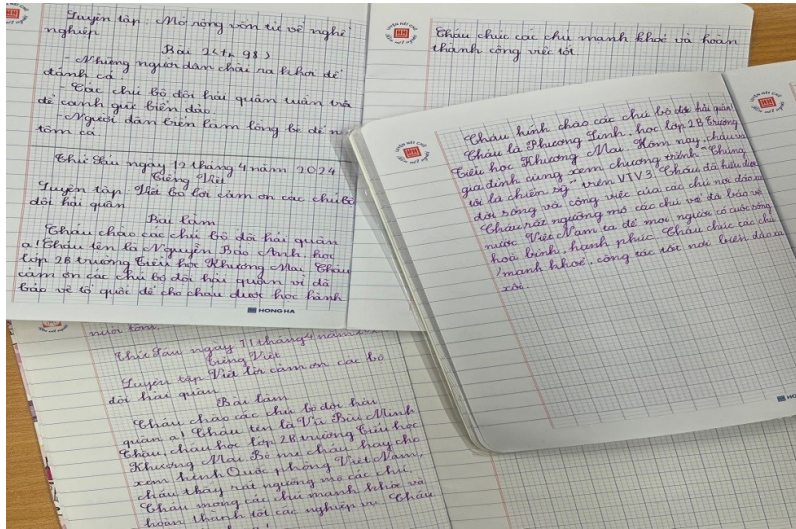 Luyện tập: Mở rộng vốn từ về nghề
nghiệp
Bài 2 (tr 98)
- Những người dân chài ra khơi để
đánh cá.
- Các chú bộ đội hải quân tuần tra
để canh giữ biển đảo.
- Người dân biển làm lồng bè để nuôi
tôm cá.
Thứ Sáu ngày 12 tháng 4 năm 2024
Tiếng Việt
Luyện tập: Viết lời cảm ơn các chú bộ
đội hải quân
Bài làm
Cháu chào các chú bộ đội hải quân
ạ! Cháu tên là Nguyễn Bảo Anh, học
lớp 2B trường Tiểu học Khương Mai. Cháu
cảm ơn các chú bộ đội hải quân vì đã
bảo vệ tổ quốc để cho cháu được học hành
HONG HA
Cháu chúc các chú mạnh khoẻ và hoàn
thành công việc tốt
Cháu kính chào các chú bộ đội hải quân!
Cháu là Phương Linh, học lớp 2B Trường
Tiểu học Khương Mai. Hôm nay, cháu và
gia đình cùng xem chương trình "Chúng
tôi là chiến sỹ" trên VTV3. Cháu đã hiểu được
đời sống và công việc của các chú nơi đảo xa.
Cháu rất ngưỡng mộ các chú vì đã bảo vệ
nước Việt Nam ta để mọi người có cuộc sống
hoà bình, hạnh phúc. Cháu chúc các chú
mạnh khoẻ, công tác tốt nơi biển đảo xa
xôi.
nuôi tôm.
Thứ Sáu ngày 11 tháng 4 năm
Tiếng Việt
Luyện tập Viết lời cảm ơn các bộ
đội hải quân
Bài làm
Cháu chào các chú bộ đội hải
quân ạ! Cháu tên là Vũ Bùi Minh
Châu, cháu học lớp 2B trường Tiểu học
Khương Mai. Bố mẹ cháu hay cho
xem kênh Quốc phòng Việt Nam,
cháu thấy rất ngưỡng mộ các chú.
Cháu mong các chú mạnh khoẻ và
hoàn thành tốt các nghiệp vụ. Cháu